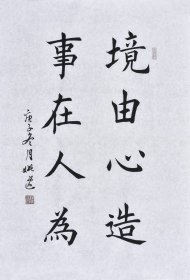 境由心造
事在人為
庚子冬月